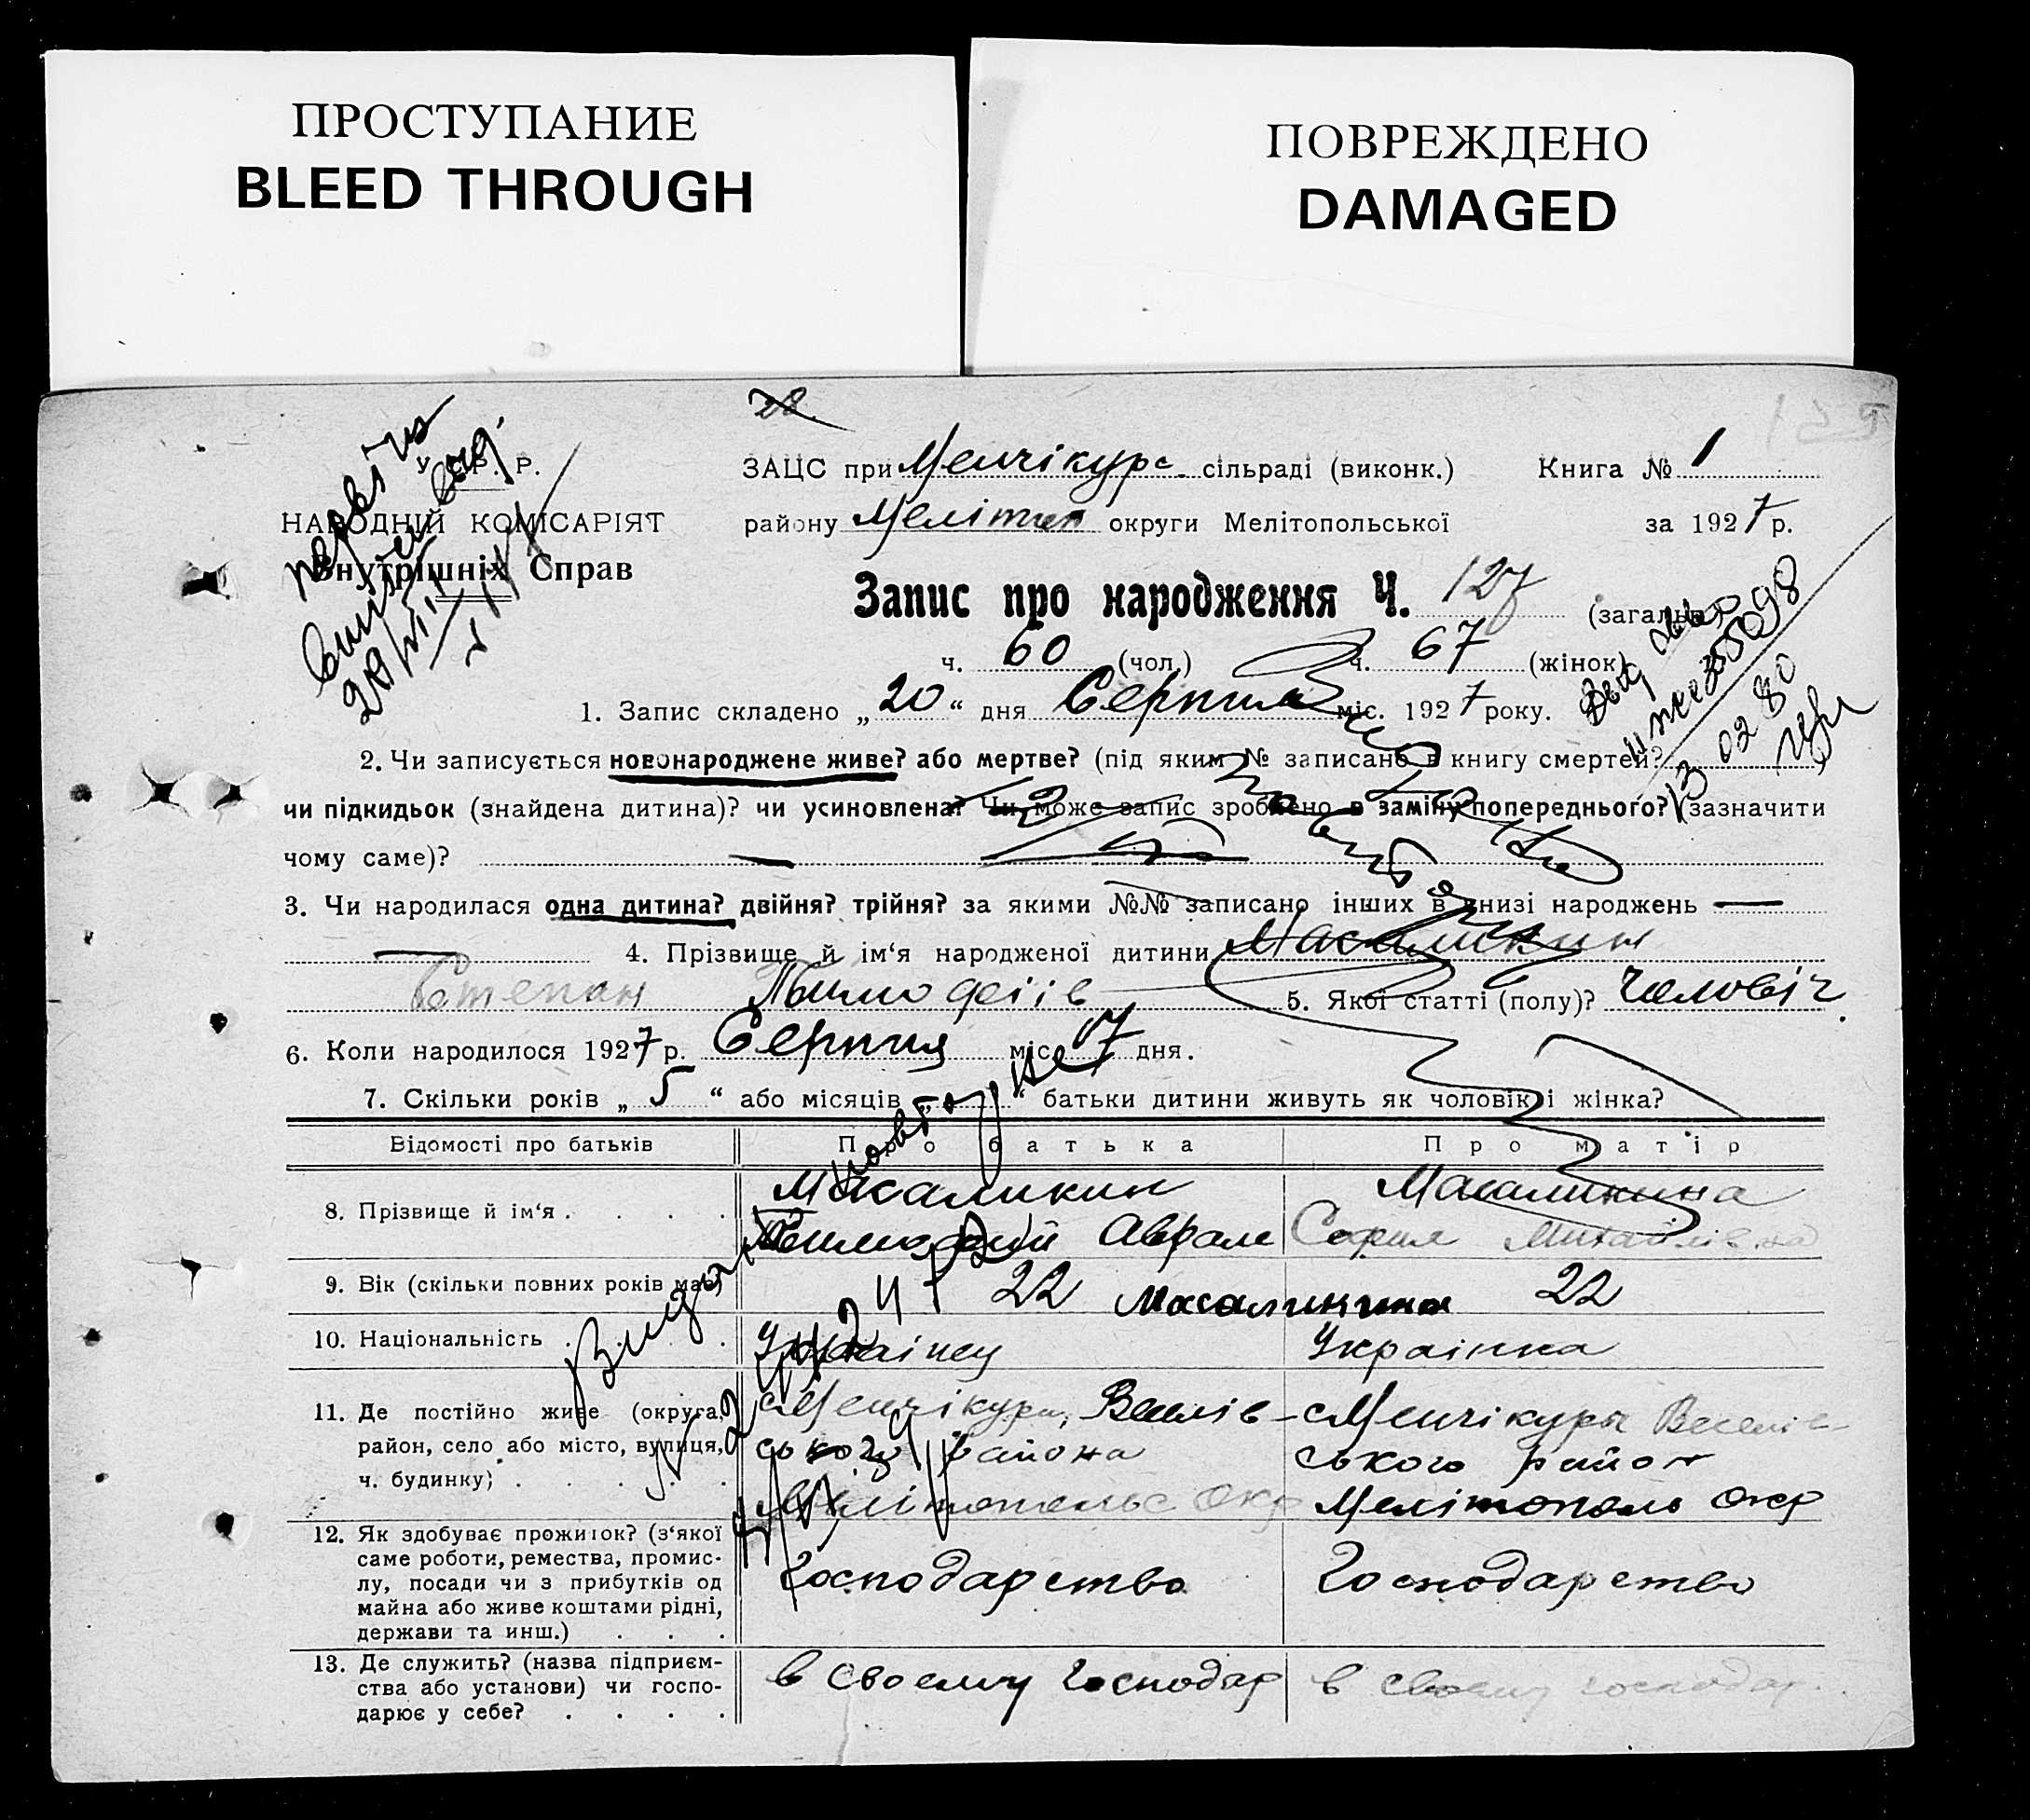 ПРОСТУПАНИЕ
BLEED THROUGH
ПОВРЕЖДЕНО
DAMAGED
28.
У. С. Р. Р.
НАРОДНІЙ КОМІСАРІЯТ
Внутрішніх Справ
ЗАЦС при Менчікурс. сільраді (виконк.) Книга № 1
району Меліто округи Мелітопольської за 1927 р.
Запис про народження Ч. 127 (загальн.
ч. 60 (чол.) ч. 67 (жінок)
1. Запис складено „20“ дня Серпня міс. 1927 року.
2. Чи записується новонароджене живе? або мертве? (під яким № записано в книгу смертей?
чи підкидьок (знайдена дитина)? чи усиновлена? Чи може запис зроблено в заміну попереднього? (зазначити
чому саме)? —
3. Чи народилася одна дитина? двійня? трійня? за якими №№ записано інших в книзі народжень —
— 4. Прізвище й ім‘я народженої дитини Масаликин
Степан Тимофеіів 5. Якої статті (полу)? Чаловіч.
6. Коли народилося 1927 р. Серпня міс. 7 дня.
7. Скільки років „5“ або місяців „ “ батьки дитини живуть як чоловік і жінка?
Відомості про батьків Про батька Про матір
8. Прізвище й ім‘я . . . . Масаликин Масаликина
Аврам София Михайлівна
9. Вік (скільки повних років має) 22 Масаликина 22
10. Національність . . . Украінец Украінка
11. Де постійно живе (округа, Менчікури, Веселів- Менчікуры Веселів-
район, село або місто, вулиця, ського района ського район
ч. будинку) . . . . Мелітопольс Окр Мелітополь Окр
12. Як здобуває прожиток? (з‘якої
саме роботи, ремества, промис-
лу, посади чи з прибутків од Господарство Господарство
майна або живе коштами рідні,
держави та инш.) . . .
13. Де служить? (назва підприєм- в своему господар в своему господар.
ства або установи) чи госпо-
дарює у себе? . . . .